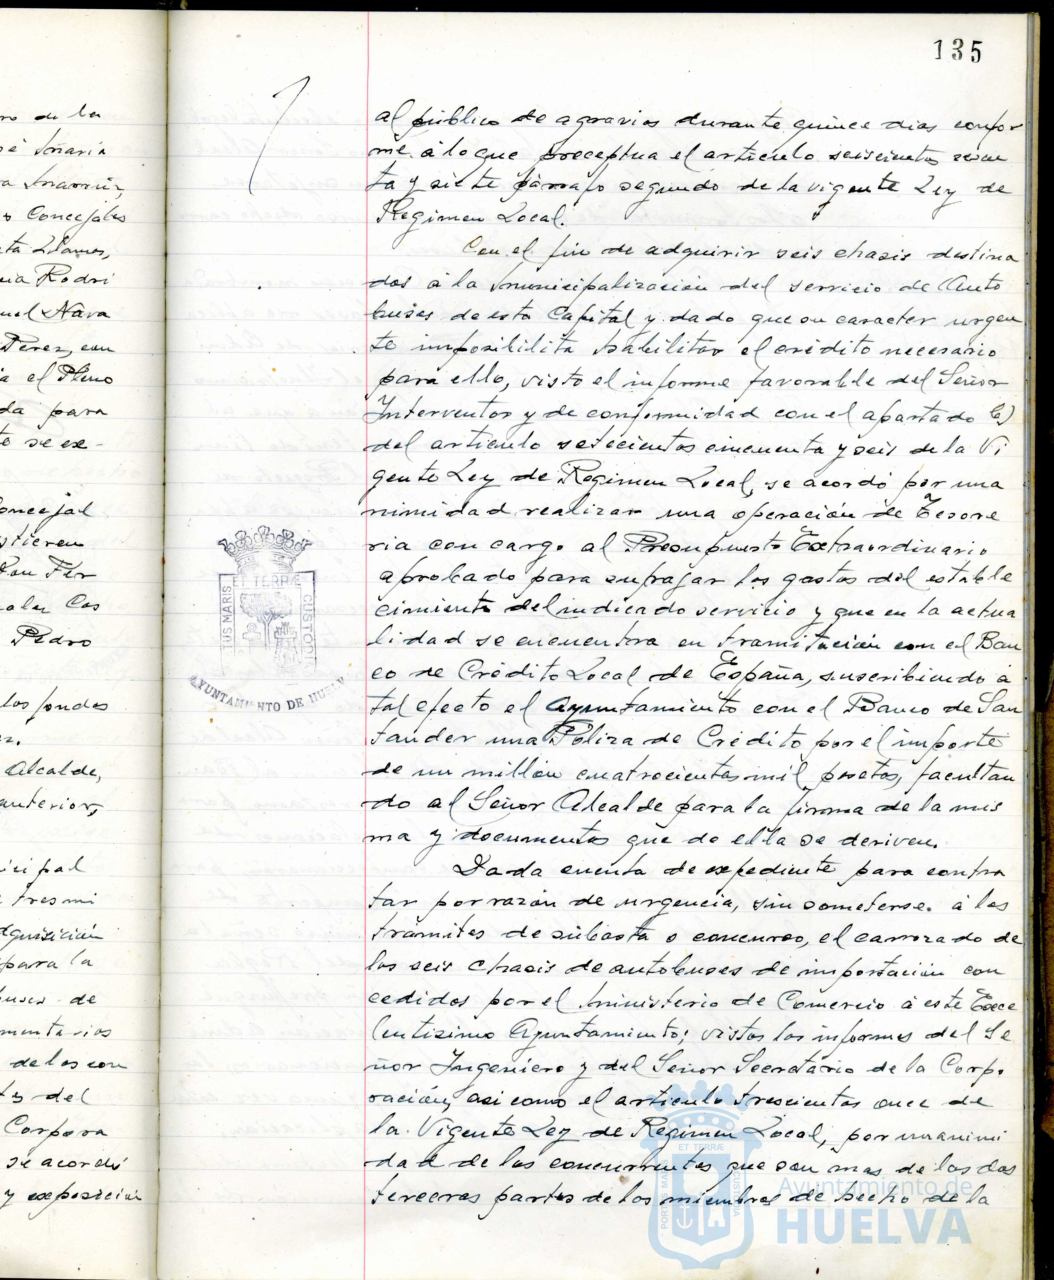 135
al público de agravios durante quince dias confor
me á lo que preceptua el articulo seiscientos seten
ta y siete párrafo segundo de la vigente Ley de
Regimen Local.
Con el fin de adquirir seis chasis destina
dos á la municipalización del servicio de Auto
buses de esta Capital y dado que su caracter urgen
te imposibilita habilitar el crédito necesario
para ello, visto el informe favorable del Señor
Interventor y de conformidad con el apartado
del articulo setecientos cincuenta y seis de la Vi
gente Ley de Regimen Local, se acordó por una
nimidad realizar una operación de Tesore
ria con cargo al Presupuesto Extraordinario
aprobado para sufragar los gastos del estable
cimiento del indicado servicio y que en la actua
lidad se encuentra en tramitación con el Ban
co de Crédito Local de España, suscribiendo á
tal efecto el Ayuntamiento con el Banco de San
tander una Póliza de Crédito por el importe
de un millón cuatrocientas mil pesetas, facultan
do al Señor Alcalde para la firma de la mis
ma y documentos que de ella se deriven.
Dada cuenta de expediente para contra
tar por razón de urgencia, sin someterse á los
trámites de súbasta o concurso, el carrozado de
los seis chasis de autobuses de importación con
cedidos por el Ministerio de Comercio á este Exce
lentisimo Ayuntamiento; vistos los informes del Se
ñor Ingeniero y del Señor Secretario de la Corpo
ración, asi como el articulo trescientos once de
la Vigente Ley de Regimen Local, por unanimi
dad de los concurrentes que son mas de las dos
terceras partes de los miembros de hecho de la
ro de la
Concejales
Rodri
Nava
Perez, con
el Pleno
da para
te se ex-
oncejal
Don Fer
Pedro
los fondos
Alcalde,
anterior,
icipal
tres mi
dquisición
para la
buses de
mentarios
de los con
del
Corpora
se acordó
y exposición
ET TERRÆ
TUS MARIS
CUSTODI
AYUNTAMIENTO DE HUELVA
ET TERRÆ
PORTUS MARIS
CUSTODIA
Ayuntamiento de
HUELVA